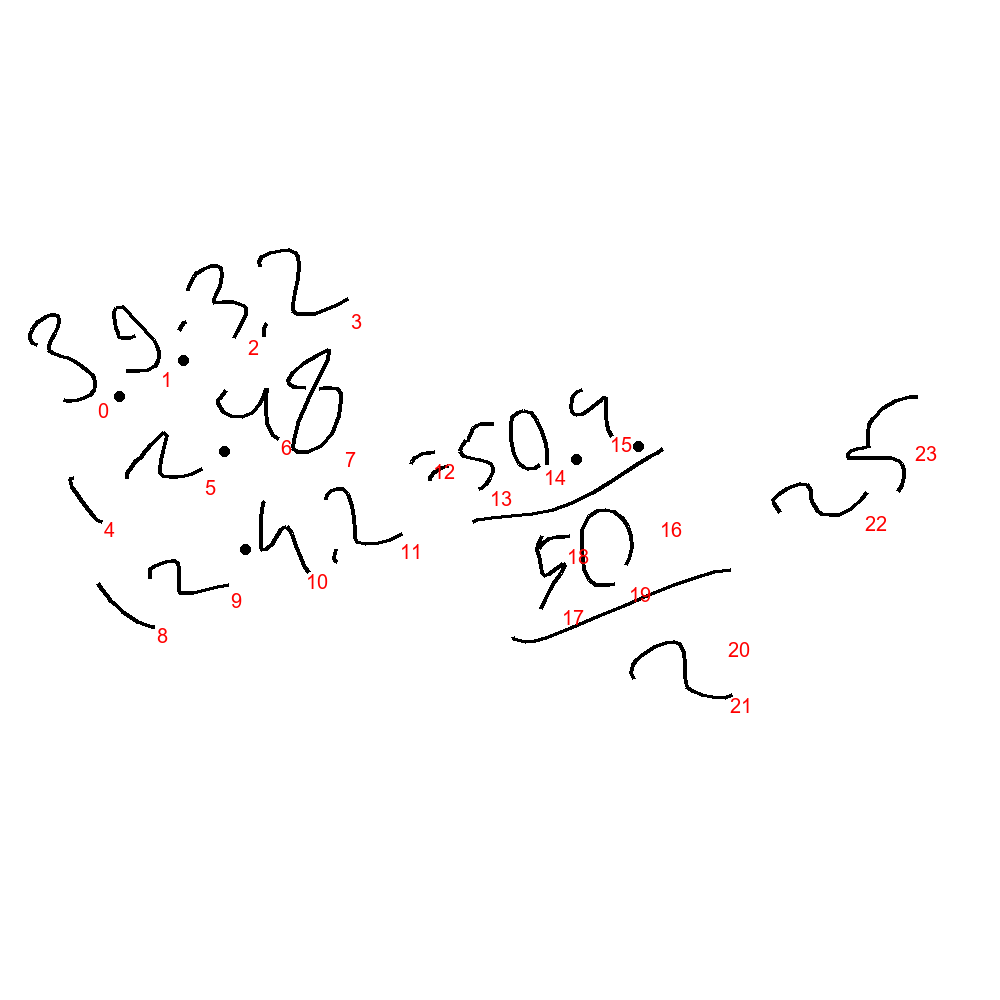 39.32
2.48
2.42
= 509
50
2
25
0
1
2
3
4
5
6
7
8
9
10
11
12
13
14
15
16
17
18
19
20
21
22
23